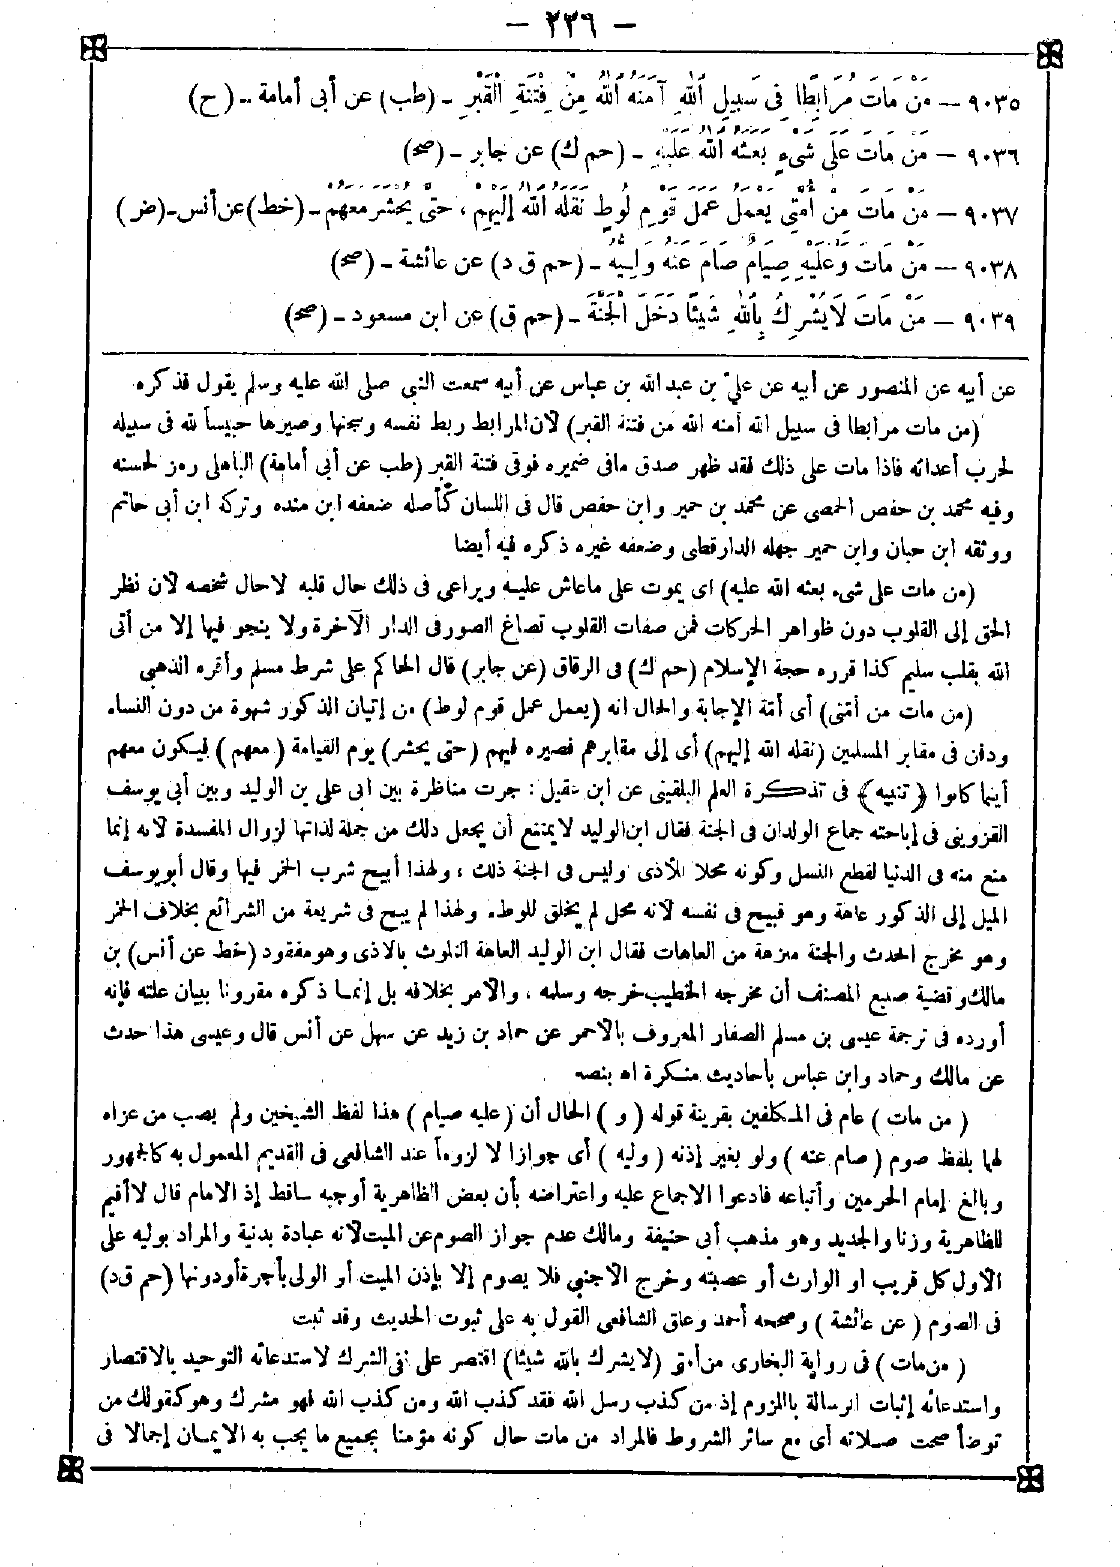 — ٢٢٦ —
٩٠٣٥ — مَنْ مَاتَ مُرَابِطًا فِى سَبِيلِ اللهِ آمَنَهُ اللهُ مِنْ فِتْنَةِ الْقَبْرِ ـ (طب) عن أبى أمامة ـ (ح)
٩٠٣٦ — مَنْ مَاتَ عَلَى شَىْءٍ بَعَثَهُ اللهُ عَلَيْهِ ـ (حم ك) عن جابر ـ (صح)
٩٠٣٧ — مَنْ مَاتَ مِنْ أُمَّتِى يَعْمَلُ عَمَلَ قَوْمِ لُوطٍ نَقَلَهُ اللهُ إِلَيْهِمْ ، حَتَّى يُحْشَرَ مَعَهُمْ ـ (خط) عن أنس ـ (ض)
٩٠٣٨ — مَنْ مَاتَ وَعَلَيْهِ صِيَامٌ صَامَ عَنْهُ وَلِيُّهُ ـ (حم ق د) عن عائشة ـ (صح)
٩٠٣٩ — مَنْ مَاتَ لَا يُشْرِكُ بِاللهِ شَيْئًا دَخَلَ الْجَنَّةَ ـ (حم ق) عن ابن مسعود ـ (صح)
عن أبيه عن المنصور عن أبيه عن علىّ بن عبد الله بن عباس عن أبيه سمعت النبى صلى الله عليه وسلم يقول فذكره
(من مات مرابطا فى سبيل الله أمنه الله من فتنة القبر) لأن المرابط ربط نفسه وسجنها وصيرها حبيساً لله فى سبيله
لحرب أعدائه فاذا مات على ذلك فقد ظهر صدق مافى ضميره فوقى فتنة القبر (طب عن أبى أمامة) الباهلى رمز لحسنه
وفيه محمد بن حفص الحمصى عن محمد بن حمير وابن حفص قال فى اللسان كأصله ضعفه ابن منده وتركه ابن أبى حاتم
ووثقه ابن حبان وابن حمير جهله الدارقطى وضعفه غيره ذكره فيه أيضا
(من مات على شىء بعثه الله عليه) اى يموت على ماعاش عليه ويراعى فى ذلك حال قلبه لاحال شخصه لأن نظر
الحق إلى القلوب دون ظواهر الحركات فمن صفات القلوب تصاغ الصور فى الدار الآخرة ولا ينجو فيها إلا من أتى
الله بقلب سليم كذا قرره حجة الإسلام (حم ك) فى الرقاق (عن جابر) قال الحاكم على شرط مسلم وأقره الذهبى
(من مات من أمتى) أى أمّة الإجابة والحال انه (يعمل عمل قوم لوط) من إتيان الذكور شهوة من دون النساء
ودفن فى مقابر المسلمين (نقله الله إليهم) أى إلى مقابرهم فصيره فيهم (حتى يحشر) يوم القيامة (معهم) فيكون معهم
أينما كانوا (تنبيه) فى تذكرة العلم البلقينى عن ابن عقيل : جرت مناظرة بين أبى على بن الوليد وبين أبى يوسف
القزوينى فى إباحته جماع الولدان فى الجنة فقال ابن الوليد لايمتنع أن يجعل ذلك من جملة لذاتها لزوال المفسدة لأنه إنما
منع منه فى الدنيا لقطع النسل وكونه محلا للأذى وليس فى الجنة ذلك ، ولهذا أبيح شرب الخمر فيها وقال أبويوسف
الميل إلى الذكور عاهة وهو قبيح فى نفسه لأنه محل لم يخلق للوطء ولهذا لم يبح فى شريعة من الشرائع بخلاف الخمر
وهو مخرج الحدث والجنة منزهة من العاهات فقال ابن الوليد العاهة التلوث بالأذى وهو مفقود (خط عن أنس) بن
مالك وقضية صنيع المصنف أن مخرجه الخطيب خرجه وسلمه ، والأمر بخلافه بل إنما ذكره مقرونا ببيان علته فإنه
أورده فى ترجمة عيسى بن مسلم الصفار المعروف بالأحمر عن حماد بن زيد عن سهل عن أنس قال وعيسى هذا حدث
عن مالك وحماد وابن عباس بأحاديث منكرة اه بنصه
(من مات) عام فى المكلفين بقرينة قوله (و) الحال أن (عليه صيام) هذا لفظ الشيخين ولم يصب من عزاه
لهما بلفظ صوم (صام عنه) ولو بغير إذنه (وليه) أى جوازا لا لزوماً عند الشافعى فى القديم المعمول به كالجمهور
وبالغ إمام الحرمين وأتباعه فادعوا الاجماع عليه واعتراضه بأن بعض الظاهرية أوجبه ساقط إذ الامام قال لاأقيم
للظاهرية وزنا والجديد وهو مذهب أبى حنيفة ومالك عدم جواز الصوم عن الميت لأنه عبادة بدنية والمراد بوليه على
الأول كل قريب او الوارث أو عصبته وخرج الاجنبى فلا يصوم إلا بإذن الميت أو الولى بأجرة أودونها (حم ق د)
فى الصوم (عن عائشة) وصححه أحمد وعلق الشافعى القول به على ثبوت الحديث وقد ثبت
(من مات) فى رواية البخارى من أمتى (لايشرك بالله شيئا) اقتصر على نفى الشرك لاستدعائه التوحيد بالاقتصار
واستدعائه إثبات الرسالة باللزوم إذ من كذب رسل الله فقد كذب الله ومن كذب الله فهو مشرك وهو كقولك من
توضأ صحت صلاته أى مع سائر الشروط فالمراد من مات حال كونه مؤمنا بجميع ما يجب به الايمان إجمالا فى